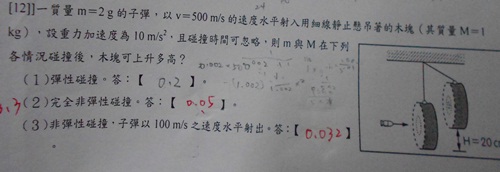 [12]一質量 m=2 g 的子彈，以 v=500 m/s 的速度水平射入用細線靜止懸吊著的木塊(其質量 M=1
kg)，設重力加速度為 10 m/s²，且碰撞時間可忽略，則 m 與 M 在下列
各情況碰撞後，木塊可上升多高？
(1)彈性碰撞。答：【 0.2 】。
(2)完全非彈性碰撞。答：【 0.05 】。
(3)非彈性碰撞，子彈以 100 m/s 之速度水平射出。答：【 0.032 】
H=20c